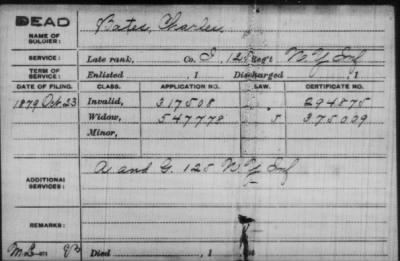 DEAD
NAME OF SOLDIER: Bates, Charles
SERVICE: Late rank, Co. I, 128 Reg't N.Y. Inf
TERM OF SERVICE: Enlisted , 1 Discharged , 1
DATE OF FILING. CLASS. APPLICATION NO. LAW. CERTIFICATE NO.
1879 Oct. 23 Invalid, 317508 294875
Widow, 547778 375009
Minor,
ADDITIONAL SERVICES: A and G. 128 N.Y. Inf
REMARKS:
Died , 1